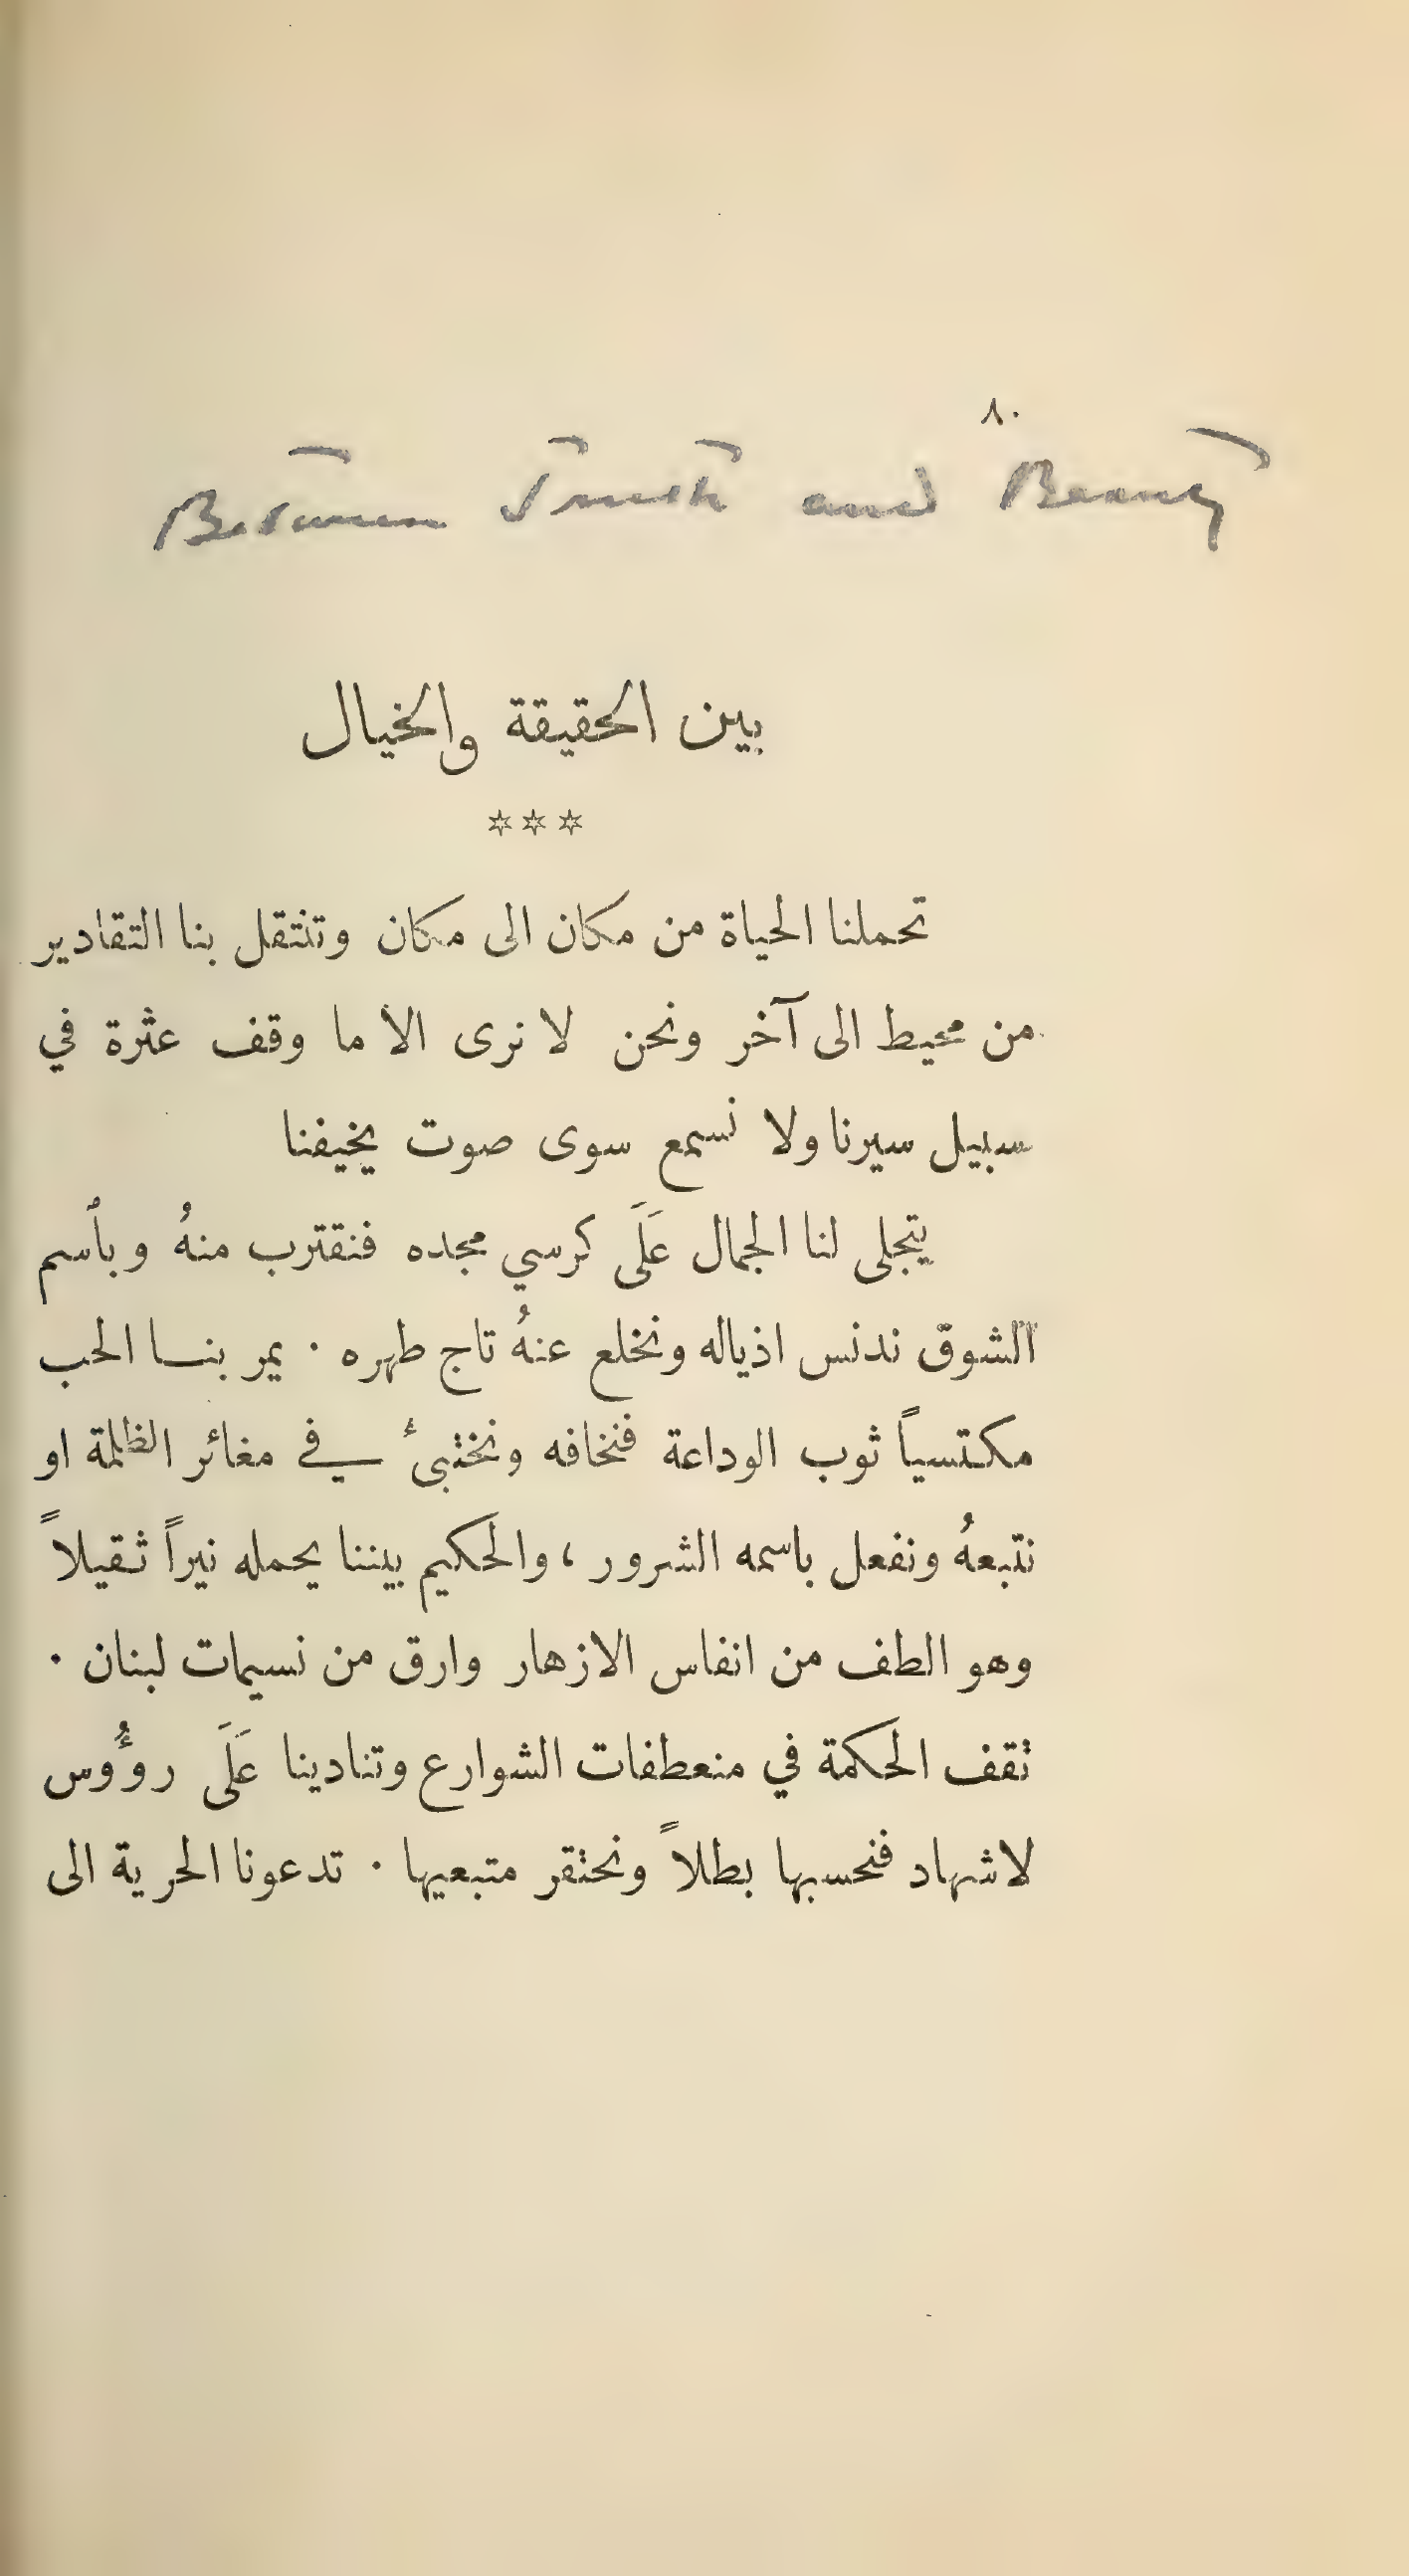 ٨٠
Between Truth and Beauty
بين الحقيقة والخيال
***
تحملنا الحياة من مكان الى مكان وتنتقل بنا التقادير
من محيط الى آخر ونحن لا نرى الا ما وقف عثرة في
سبيل سيرنا ولا نسمع سوى صوت يخيفنا
يتجلى لنا الجمال عَلَى كرسي مجده فنقترب منهُ وبأسم
الشوق ندنس اذياله ونخلع عنهُ تاج طهره ٠ يمر بنا الحب
مكتسياً ثوب الوداعة فنخافه ونختبىءُ في مغائر الظلمة او
نتبعهُ ونفعل باسمه الشرور ، والحكيم بيننا يحمله نيراً ثقيلاً
وهو الطف من انفاس الازهار وارق من نسيمات لبنان ٠
تقف الحكمة في منعطفات الشوارع وتنادينا عَلَى روؤُوس
لاشهاد فنحسبها بطلاً ونحتقر متبعيها ٠ تدعونا الحرية الى